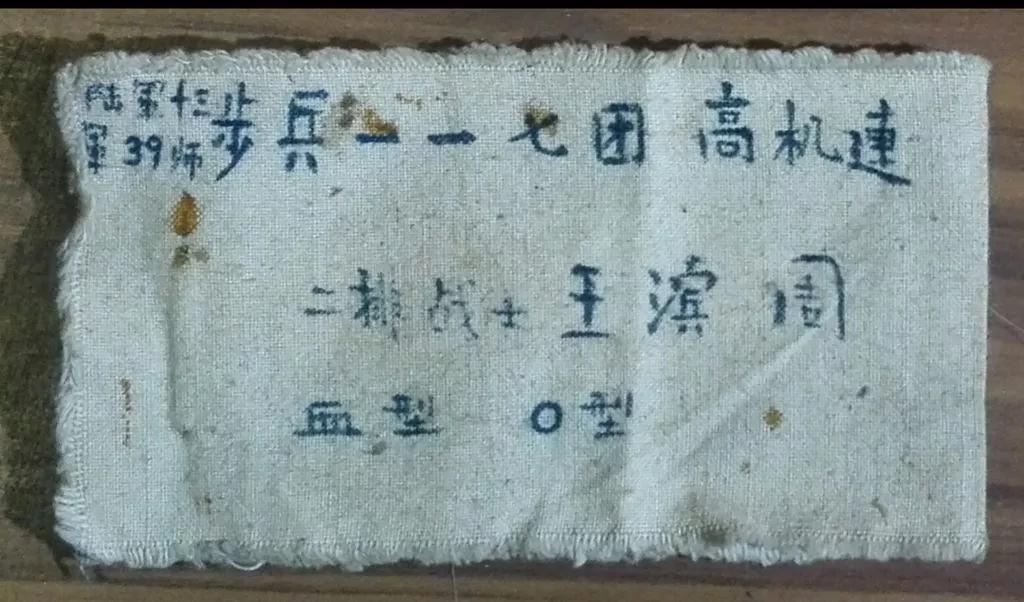 陆軍十三軍39师步兵一一七团 高机連
二排战士 王滨周
血型 O型